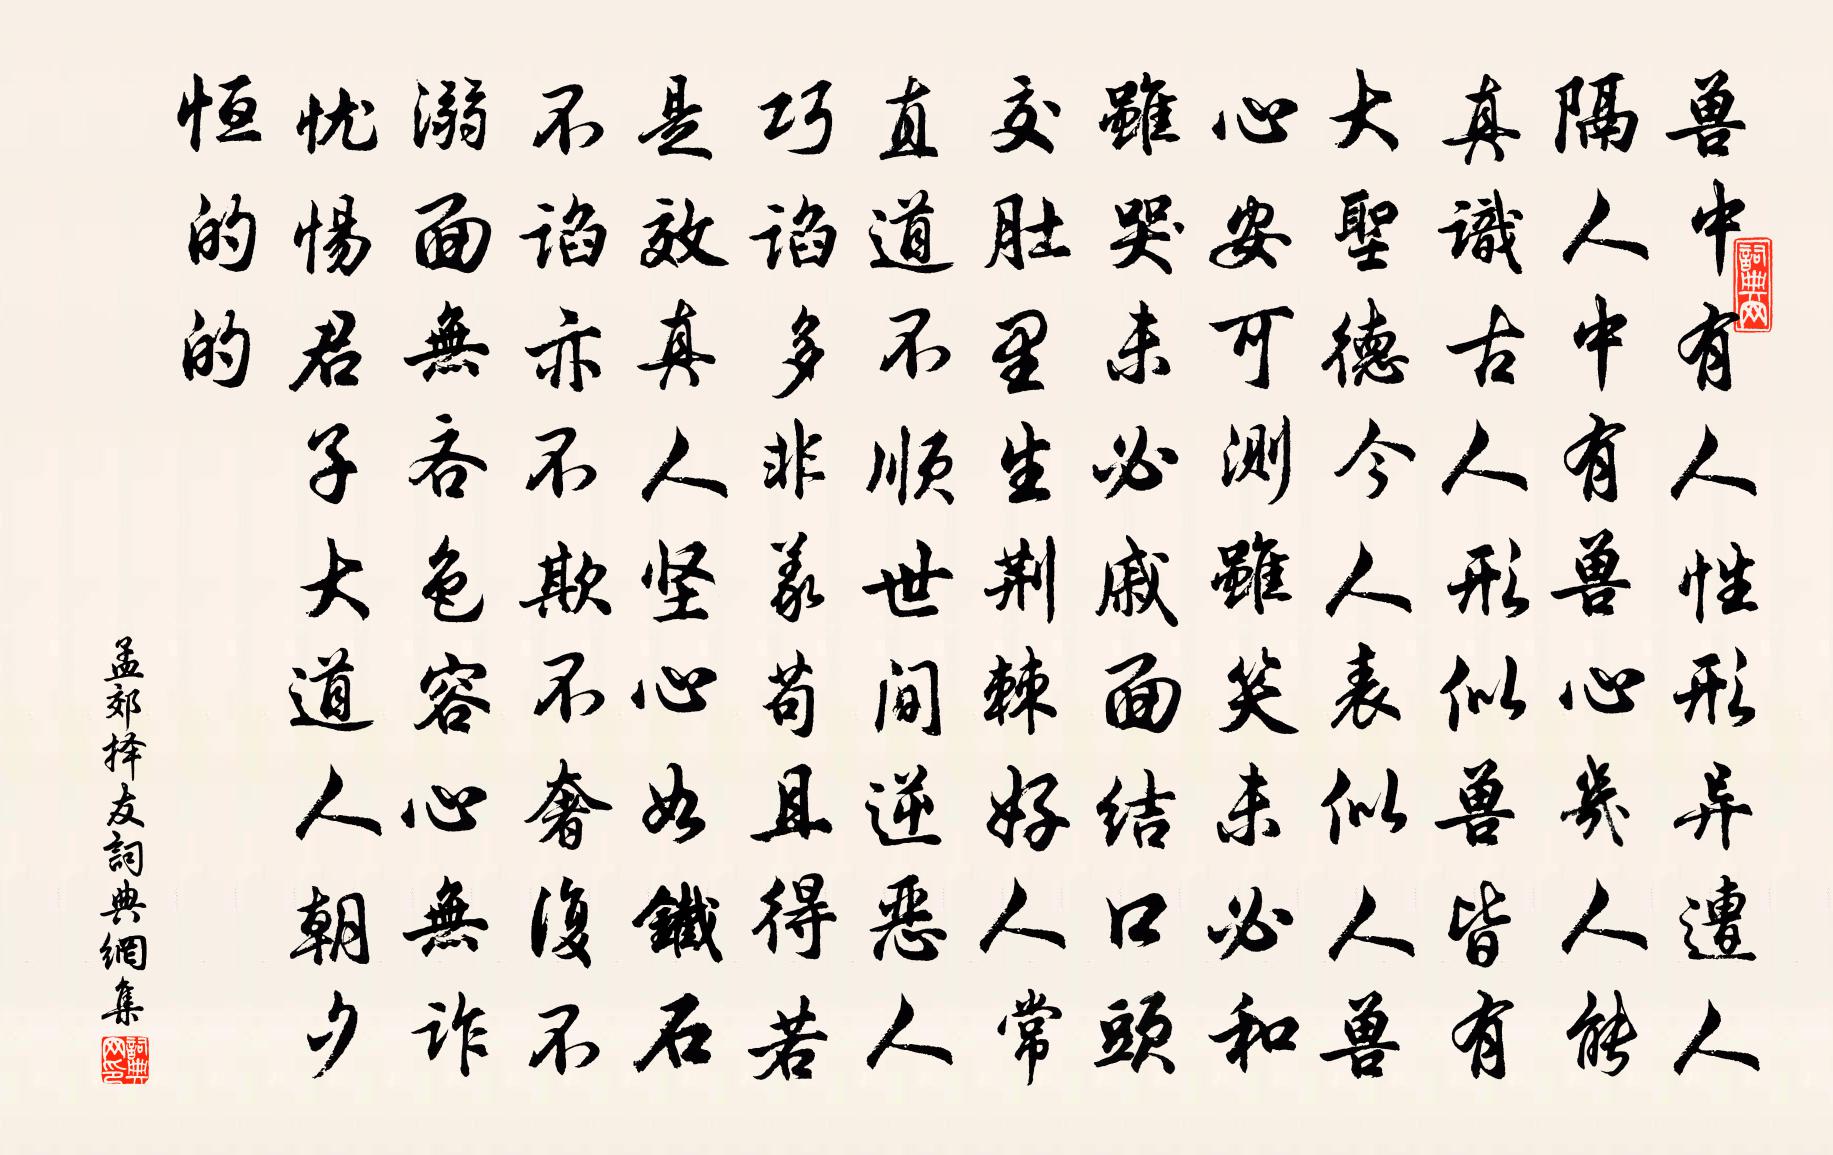 兽中有人性形异遭人
隔人中有兽心幾人能
真識古人形似兽皆有
大聖德今人表似人兽
心安可測雖笑未必和
雖哭未必戚面结口頭
交肚里生荆棘好人常
直道不顺世间逆恶人
巧谄多非义苟且得若
是效真人坚心如鐵石
不谄亦不欺不奢復不
溺面無吝色容心無诈
忧惕君子大道人朝夕
恒的的
孟郊择友詞典網集
詞典网
詞典网印